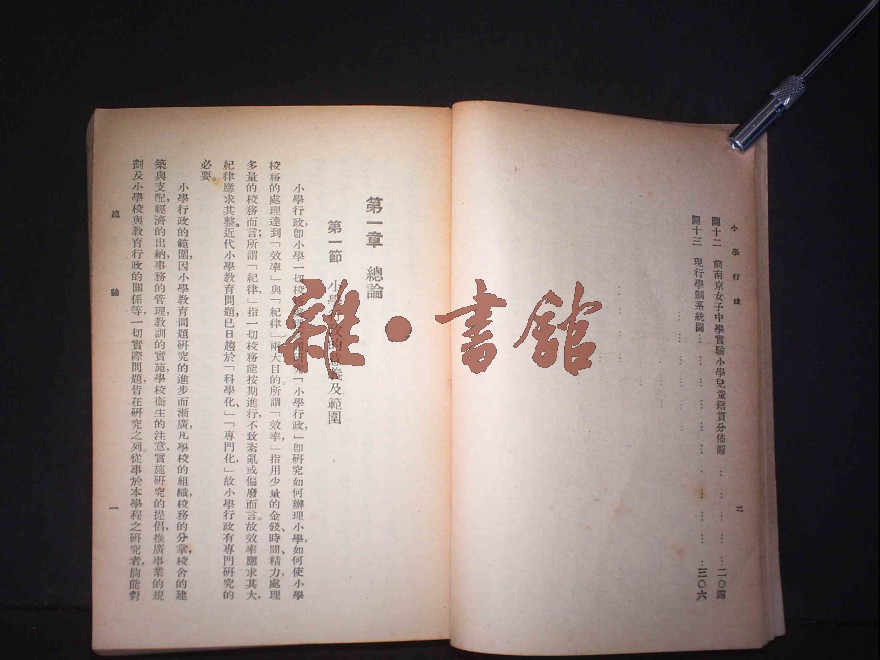 小學行政
圖十二　前南京女子中學實驗小學兒童籍貫分佈圖……二〇四
圖十三　現行學制系統圖……三〇六
二
第一章　總論
第一節　小學行政的意義及範圍
小學行政，卽小學一切校務「小學行政，」卽研究如何辦理小學，如何使小學
校務的處理達到「效率」與「紀律」兩大目的。所謂「效率，」指用少量的金錢、時間、精力，處理
多量的校務而言；所謂「紀律，」指一切校務能按期進行，不致紊亂或偏廢而言。故效率應求其大，
紀律應求其整。近代小學教育問題，已日趨於「科學化、」「專門化，」故小學行政有專門研究的
必要。
小學行政的範圍，因小學教育問題研究的進步而漸廣，凡學校的組織，校務的分掌，校舍的建
築與支配，經濟的出納，事務的管理，教訓的實施，學校衞生的注意，實施研究的提倡，推廣事業的規
劃及小學校與教育行政的關係等，一切實際問題，皆在研究之列。從事於本學程之研究者，倘能對
總論
一
雜·書館